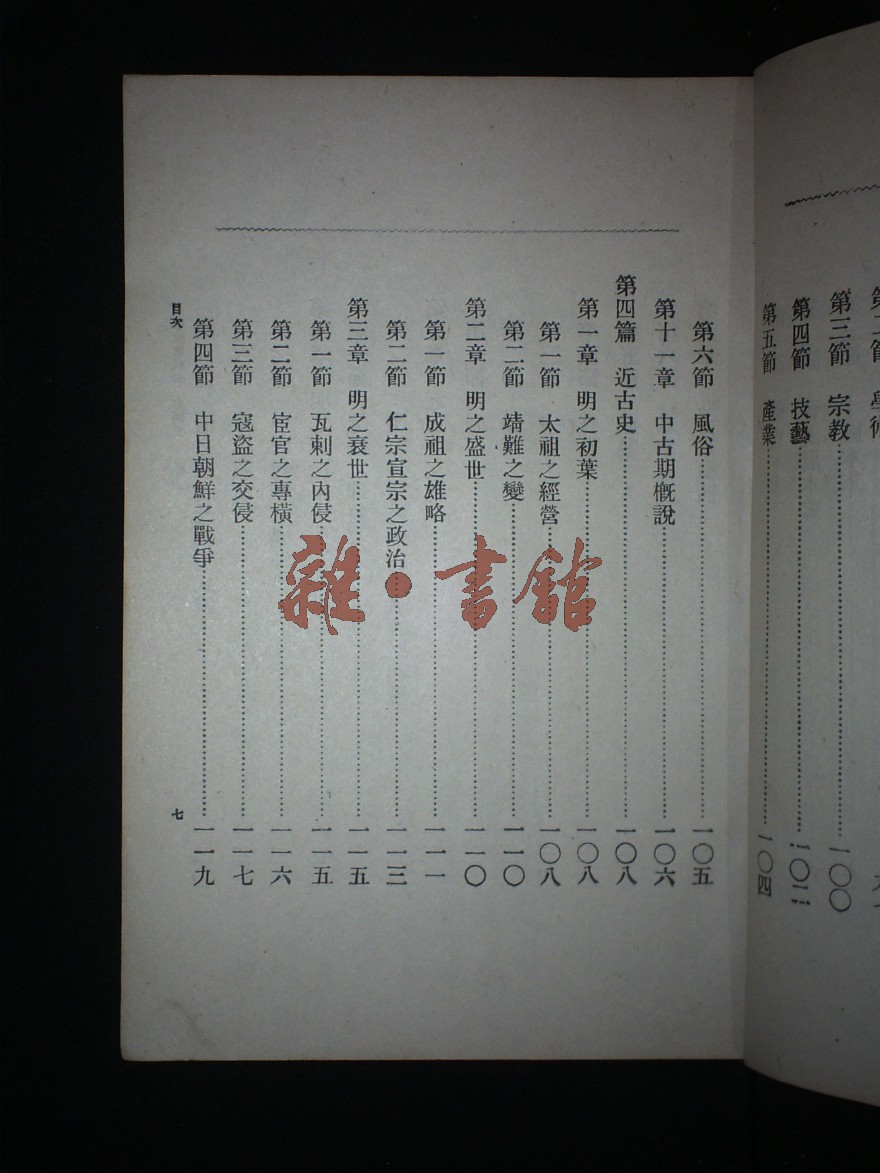 第三節　宗教……一〇〇
第四節　技藝……一〇二
第五節　產業……一〇四
第六節　風俗……一〇五
第十一章　中古期概說……一〇六
第四篇　近古史……一〇八
第一章　明之初葉……一〇八
第一節　太祖之經營……一〇八
第二節　靖難之變……一一〇
第二章　明之盛世……一一〇
第一節　成祖之雄略……一一一
第二節　仁宗宣宗之政治……一一三
第三章　明之衰世……一一五
第一節　瓦剌之內侵……一一五
第二節　宦官之專橫……一一六
第三節　寇盜之交侵……一一七
第四節　中日朝鮮之戰爭……一一九
目次
七
雜·書館